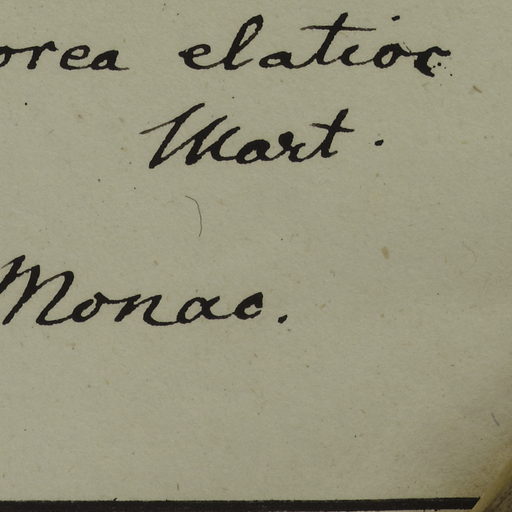 orea elatior
Mart.
Monac.